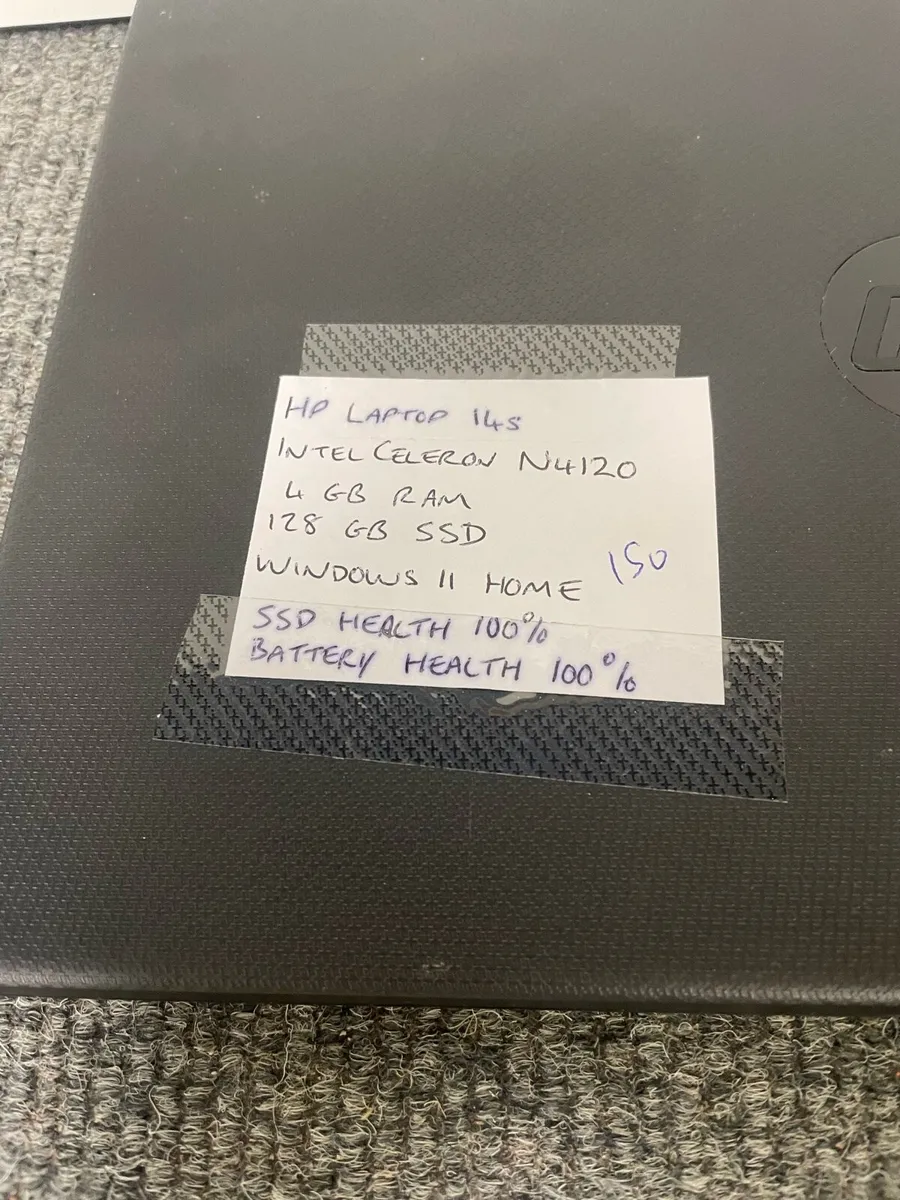 HP LAPTOP 14s
INTEL CELERON N4120
4 GB RAM
128 GB SSD
WINDOWS 11 HOME
150
SSD HEALTH 100%
BATTERY HEALTH 100%